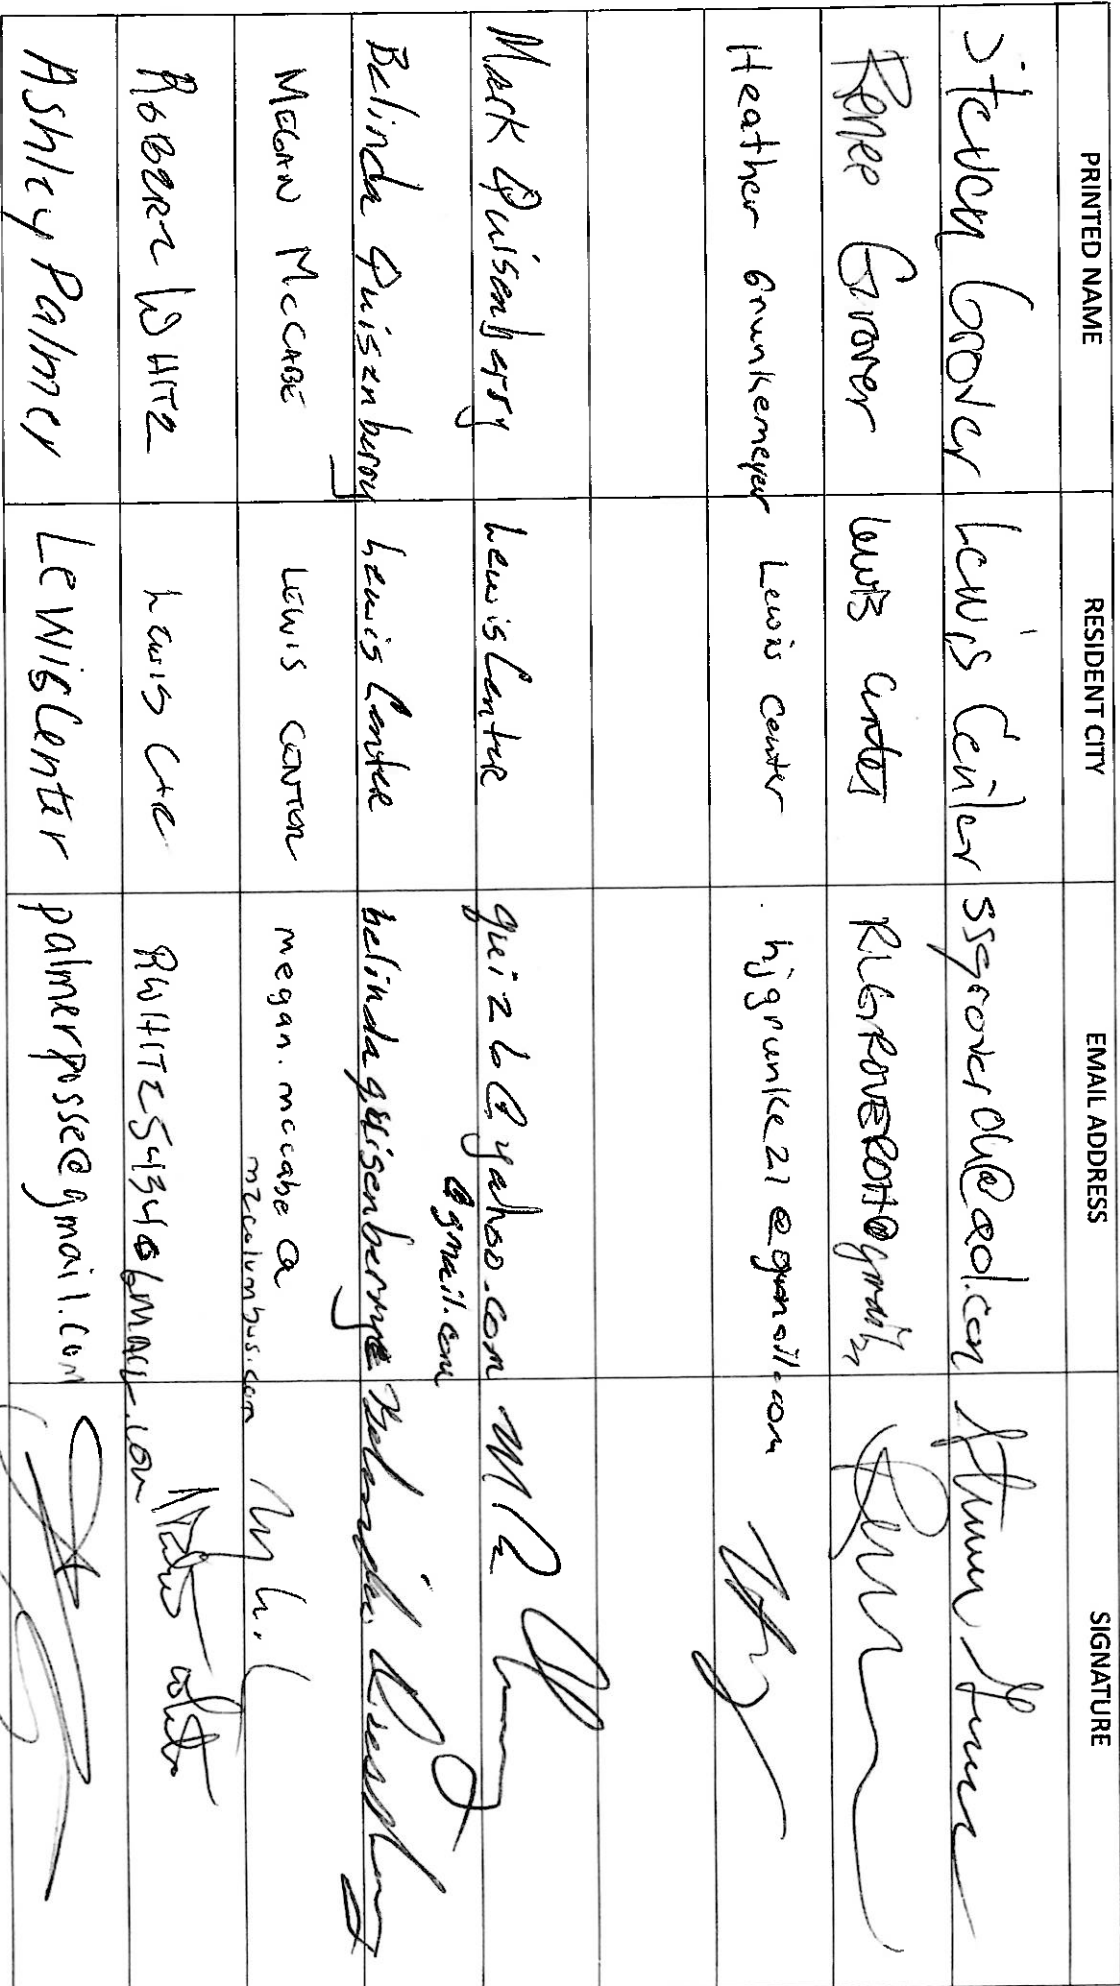 PRINTED NAME RESIDENT CITY EMAIL ADDRESS SIGNATURE
Steven Grover Lewis Center ssgroverOU@aol.com
Renee Grover Lewis Center RLGROVEROH@gmail
Heather Grunkemeyer Lewis Center hjgrunke21@gmail.com
Mark Quisenberry Lewis Center quiz6@yahoo.com
Belinda Quisenberry Lewis Center belindaquisenberry@
@gmail.com
MEGAN McCABE LEWIS CENTER megan.mccabe@
mzcolumbus.com
ROBERT WHITE Lewis Ctr RWHITE5434@GMAIL.com
Ashley Palmer Lewis Center palmerposse@gmail.com